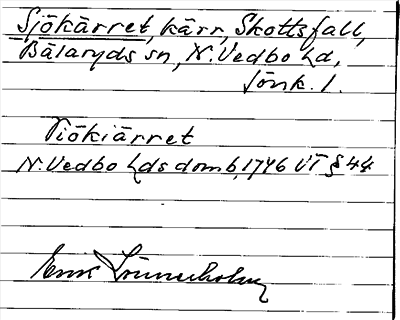 Sjökärret, kärr, Skottsfall,
Bälaryds sn, N. Vedbo hd,
Jönk. l.
Siökiärret
N. Vedbo hds domb, 1746 VT § 44
Erik Lönnerholm